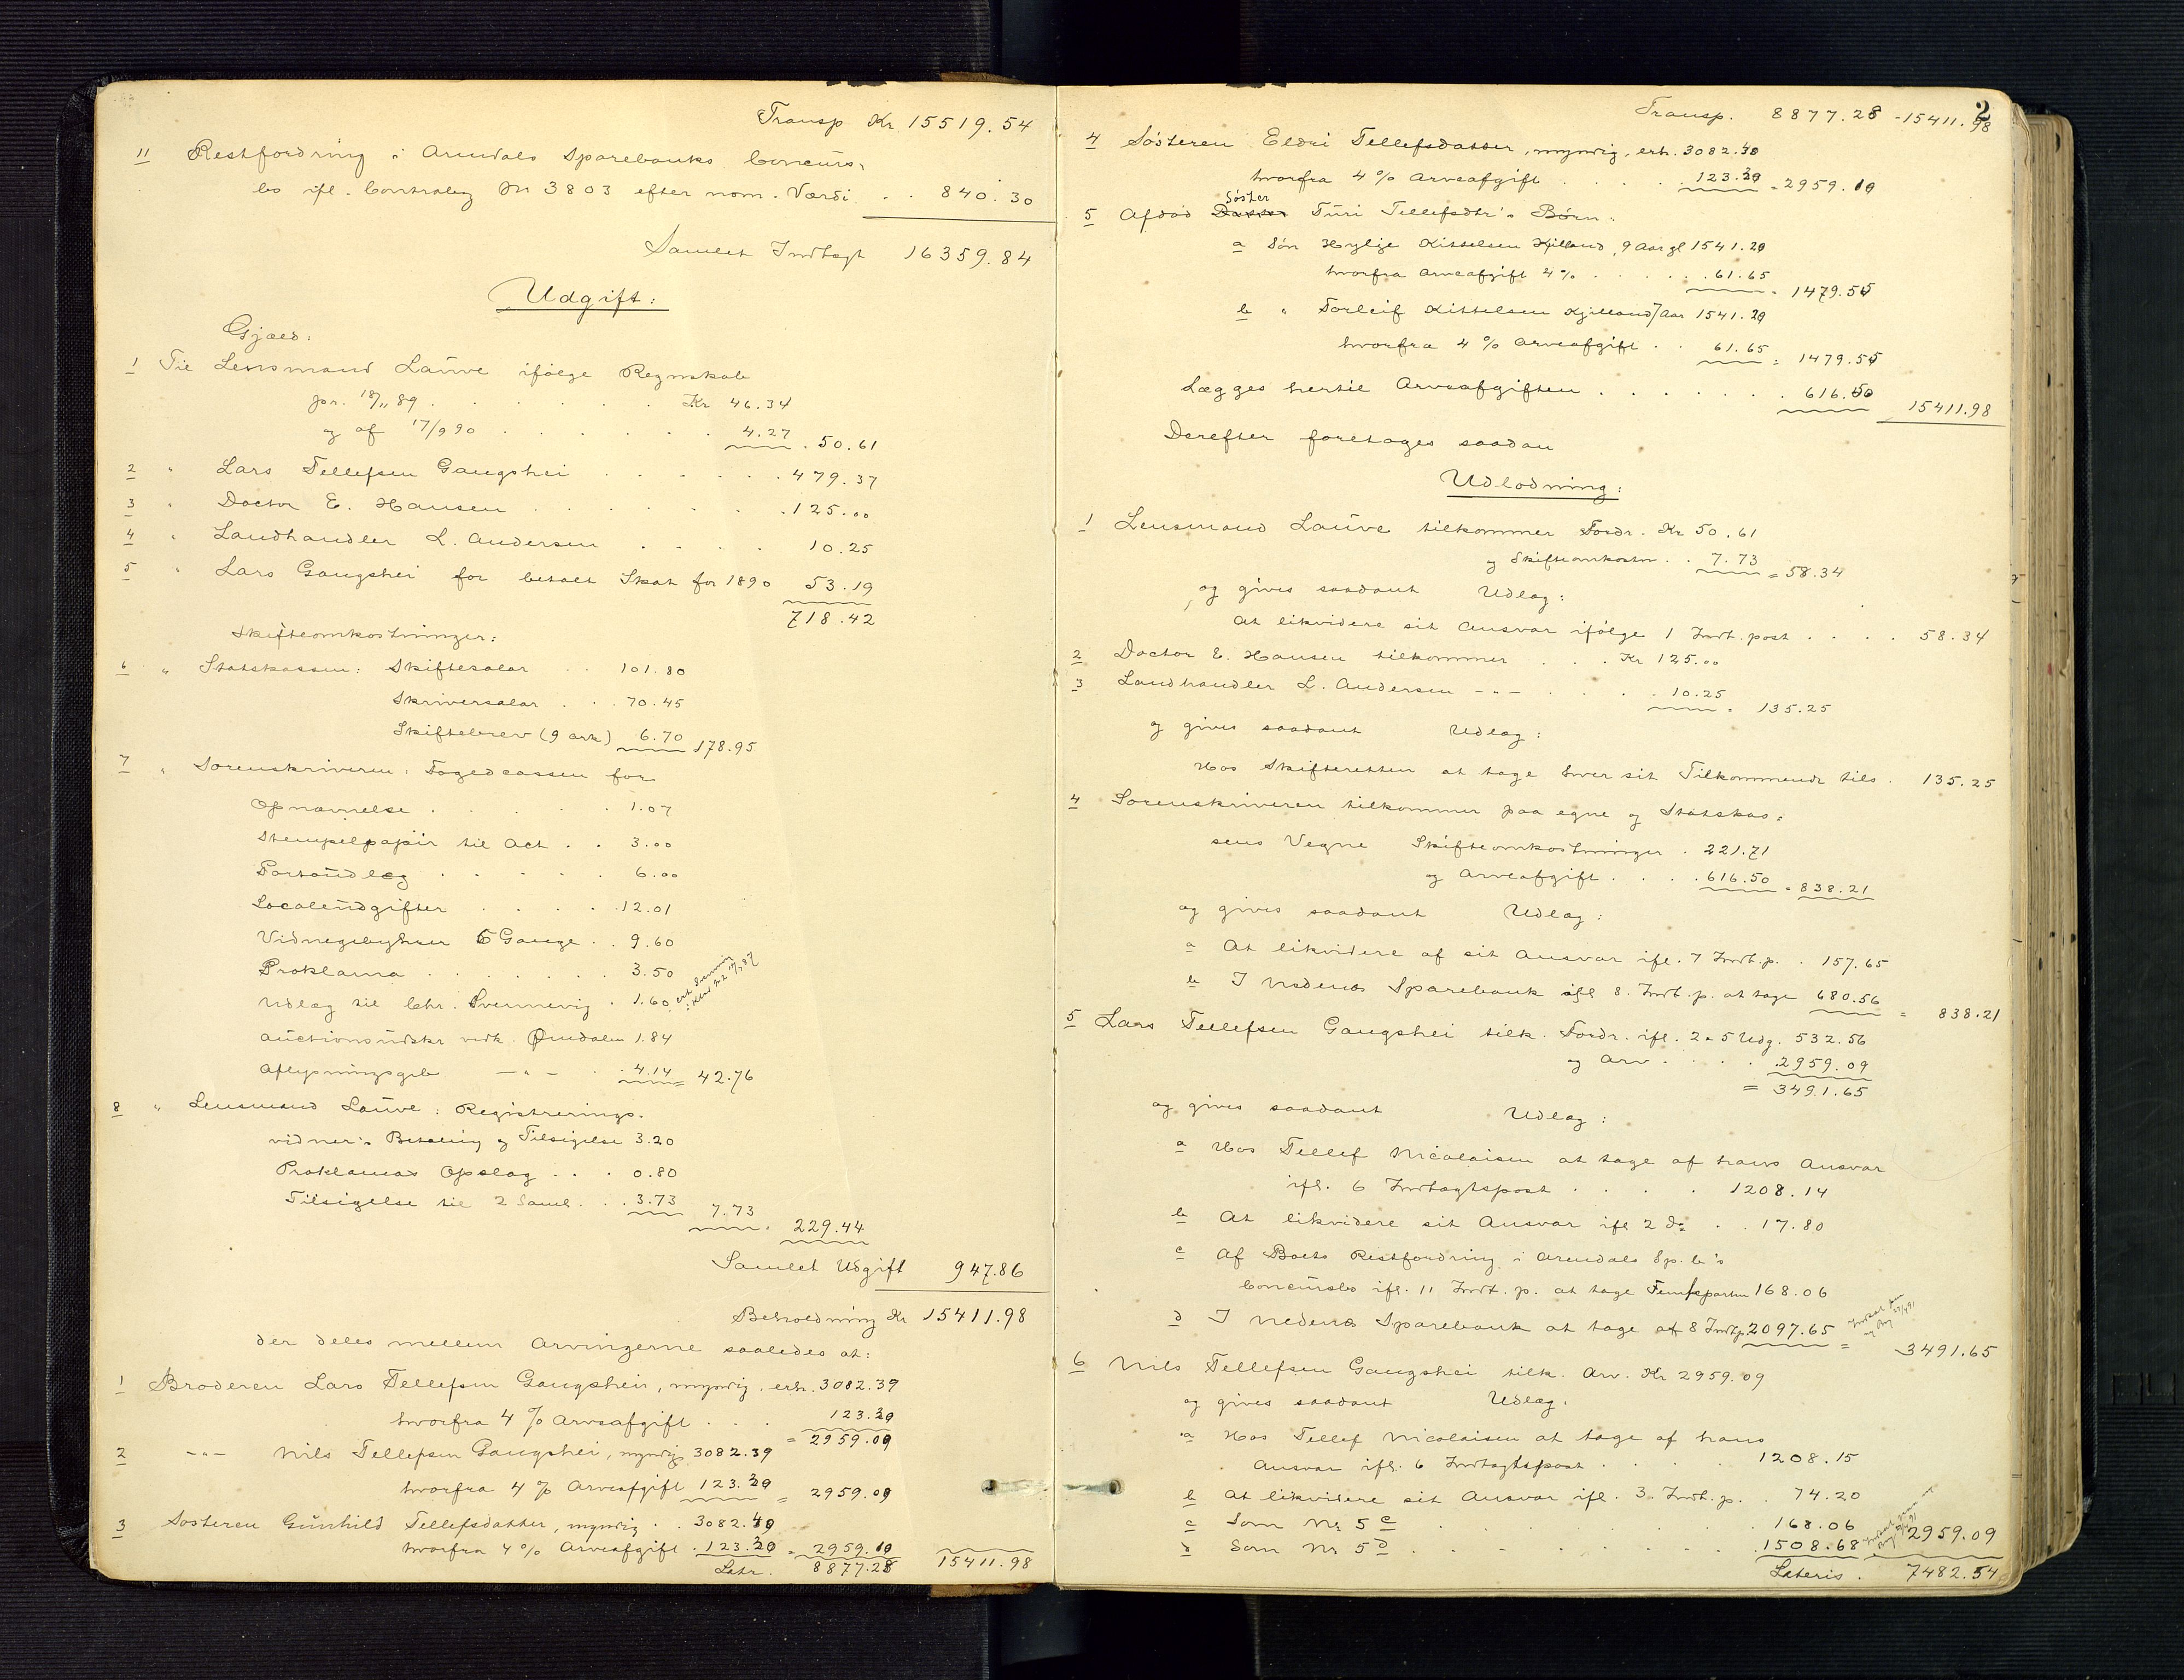 Transp Kr. 15519.54
11 Restfordring i Arendals Sparebanks Concurs-
bo ifl. Contrabog No 3803 efter nom. Værdi . . 840.30
Samlet Indtægt 16359.84
Udgift:
Gjæld:
1 Til Lensmand Lauve ifølge Regnskab
pr. 18/11 89 . . . Kr 46.34
og af 17/9 90 . . . 4.27 . 50.61
2 " Lars Tellefsen Gaugshei . . . 479.37
3 " Doctor E. Hansen . . . 125.00
4 " Landhandler L. Andersen . . . 10.25
5 " Lars Gaugshei for betalt Skat for 1890 53.19
718.42
Skifteomkostninger:
6 " Statskassen: Skiftesalar . . 101.80
Skriversalar . . 70.45
Skiftebrev (9 ark) 6.70 178.95
7 " Sorenskriveren: Fogedcassen for
Opnævnelse . . . 1.07
Stempelpapir til Act . . 3.00
Portoudlæg . . . 6.00
Localeudgifter . . . 12.01
Vidnegebyhrer 6 Gange . . 9.60
Proklama . . . 3.50
Udlæg til Chr. Svennevig . 1.60
Auctionsudskr vedk. Omdalen 1.84
Aflysningsgeb —"— . 4.14 = 42.76
8 " Lensmand Lauve: Registrerings-
vidner's Betaling og Tilsigelse 3.20
Proklamas Opslag . . . 0.80
Tilsigelse til 2 Saml. . . 3.73 7.73
= 229.44
Samlet Udgift 947.86
Beholdning Kr 15411.98
der deles mellem Arvingerne saaledes at:
1 Broderen Lars Tellefsen Gaugshei, myndig, erh. 3082.39
hvorfra 4 % Arveafgift . . . 123.30
= 2959.09
2 —"— Nils Tellefsen Gaugshei, myndig 3082.39
hvorfra 4 % Arveafgift 123.30 = 2959.09
3 Søsteren Gunhild Tellefsdatter, myndig . . 3082.40
hvorfra 4 % Arveafgift . 123.30 = 2959.10 15411.98
Latr. 8877.28
2
Transp. 8877.28 - 15411.98
4 Søsteren Eldri Tellefsdatter, myndig, erh. 3082.40
hvorfra 4 % Arveafgift . . . 123.30 = 2959.10
5 Afdød Søster Turi Tellefsdtr's Børn:
a Søn Hylje Kittelsen Kjilland, 9 Aar gl 1541.20
hvorfra Arveafgift 4 % . . . 61.65 = 1479.55
b " Torleif Kittelsen Kjilland 7 Aar 1541.20
hvorfra 4 % Arveafgift . . 61.65 = 1479.55
Lægges hertil Arveafgiften . . . 616.50 15411.98
Derefter foretages saadan
Udlodning:
1 Lensmand Lauve tilkommer Fordr. Kr 50.61
og Skifteomkostn. . 7.73 = 58.34
og gives saadant Udlæg:
At likvidere sit Ansvar ifølge 1 Indt. post . . . . 58.34
2 Doctor E. Hansen tilkommer . . . Kr 125.00
3 Landhandler L. Andersen —"— . . . 10.25 = 135.25
og gives saadant Udlæg:
Hos Skifteretten at tage hver sit Tilkommende tils. 135.25
4 Sorenskriveren tilkommer paa egne og Statskas-
sens Vegne Skifteomkostninger . 221.71
og Arveafgift . . . 616.50 = 838.21
og gives saadant Udlæg:
a At likvidere af sit Ansvar ifl. 7 Indt. p. . 157.65
b I Nedenæs Sparebank ifl 8. Indt. p. at tage 680.56 = 838.21
5 Lars Tellefsen Gaugshei tilk. Fordr. ifl. 2 & 5 Udg. 532.56
og Arv . . . 2959.09
= 3491.65
og gives saadant Udlæg:
a Hos Tellef Nicolaisen at tage af hans Ansvar
ifl. 6 Indtægtspost . . . 1208.14
b At likvidere sit Ansvar ifl 2 do . . 17.80
c Af Boets Restfordring i Arendals Sp. b's
Concursbo ifl. 11 Indt. p. at tage Femteparten 168.06
d I Nedenæs Sparebank at tage af 8 Indtp. 2097.65 = 3491.65
6 Nils Tellefsen Gaugshei tilk. Arv. Kr 2959.09
og gives saadant Udlæg.
a Hos Tellef Nicolaisen at tage af hans
Ansvar ifl. 6 Indtægtspost . . . 1208.15
b At likvidere sit Ansvar ifl. 3. Indt. p. . 74.20
c Som No 5 c . . . 168.06
d Som No 5 d . . . 1508.68 2959.09
Lateris . 7482.54